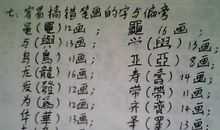 七、容易搞错笔画的字与偏旁
黾(黽)12画; 龜 16画;
与(與)13画; 兴(興)13画;
乌(烏)11画; 亚(亞)8画;
龙(龍)16画; 寿(壽)14画;
发(發)12画; 带(帶)11画;
为(為)12画; 齐(齊)14画;
华(華)13画;